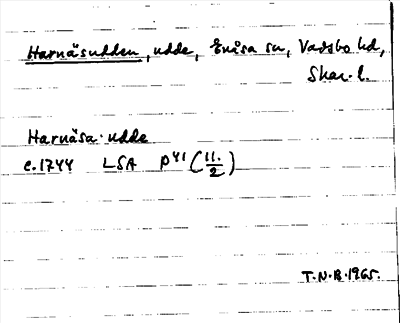 Harnäsudden, udde, Enåsa sn, Vadsbo hd,
Skar. l.
Harnäsa udde
c. 1744 LSA P41 (11./2)
T.N.B. 1965.